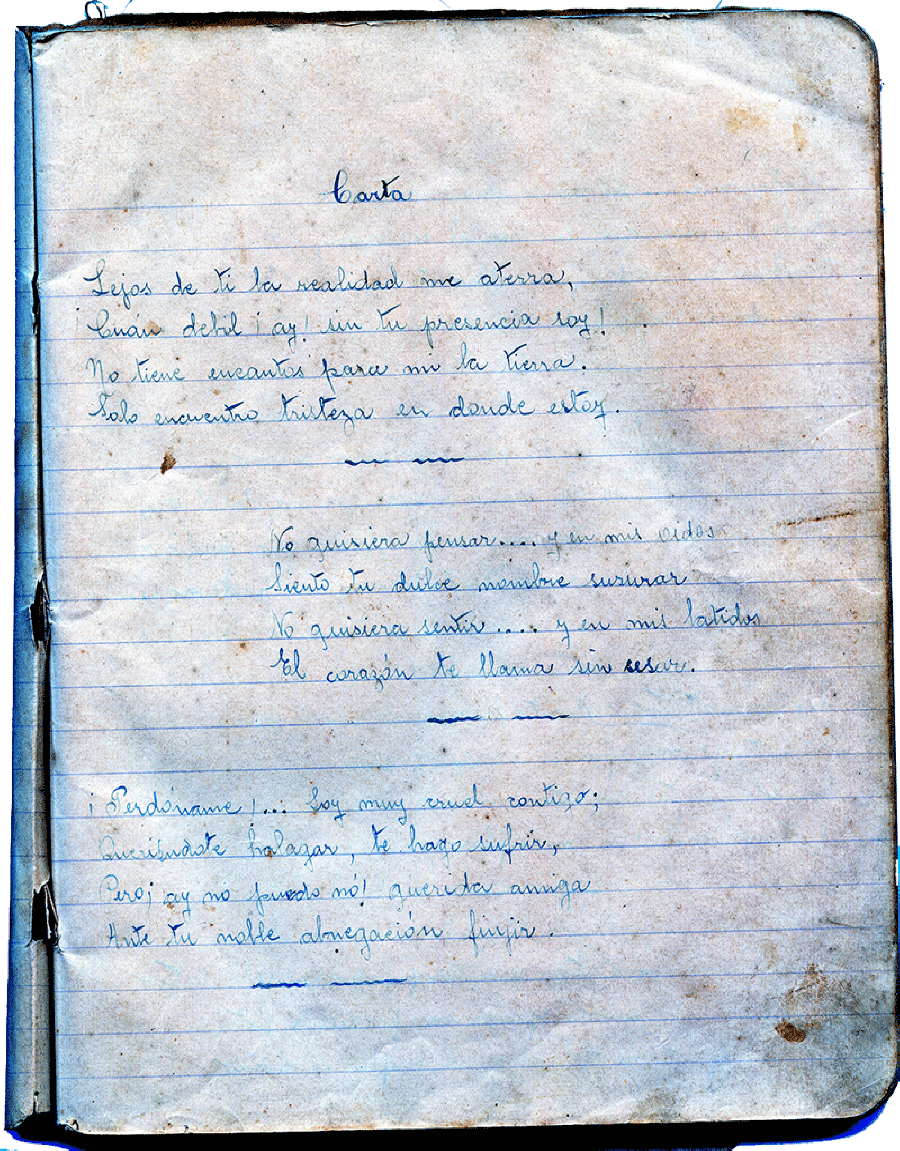 Carta
Lejos de ti la realidad me aterra,
¡Cuán debil ¡ay! sin tu presencia soy!
No tiene encantos para mi la tierra.
Solo encuentro tristeza en donde estoy.
No quisiera pensar.... y en mis oidos
Siento tu dulce nombre suzurar
No quisiera sentir.... y en mis latidos
El corazón te llama sin sesar.
¡Perdóname!... Soy muy cruel contigo;
Queriéndote halagar, te hago sufrir,
Pero ¡ay no puedo nó! querida amiga
Ante tu noble abnegación finjir.